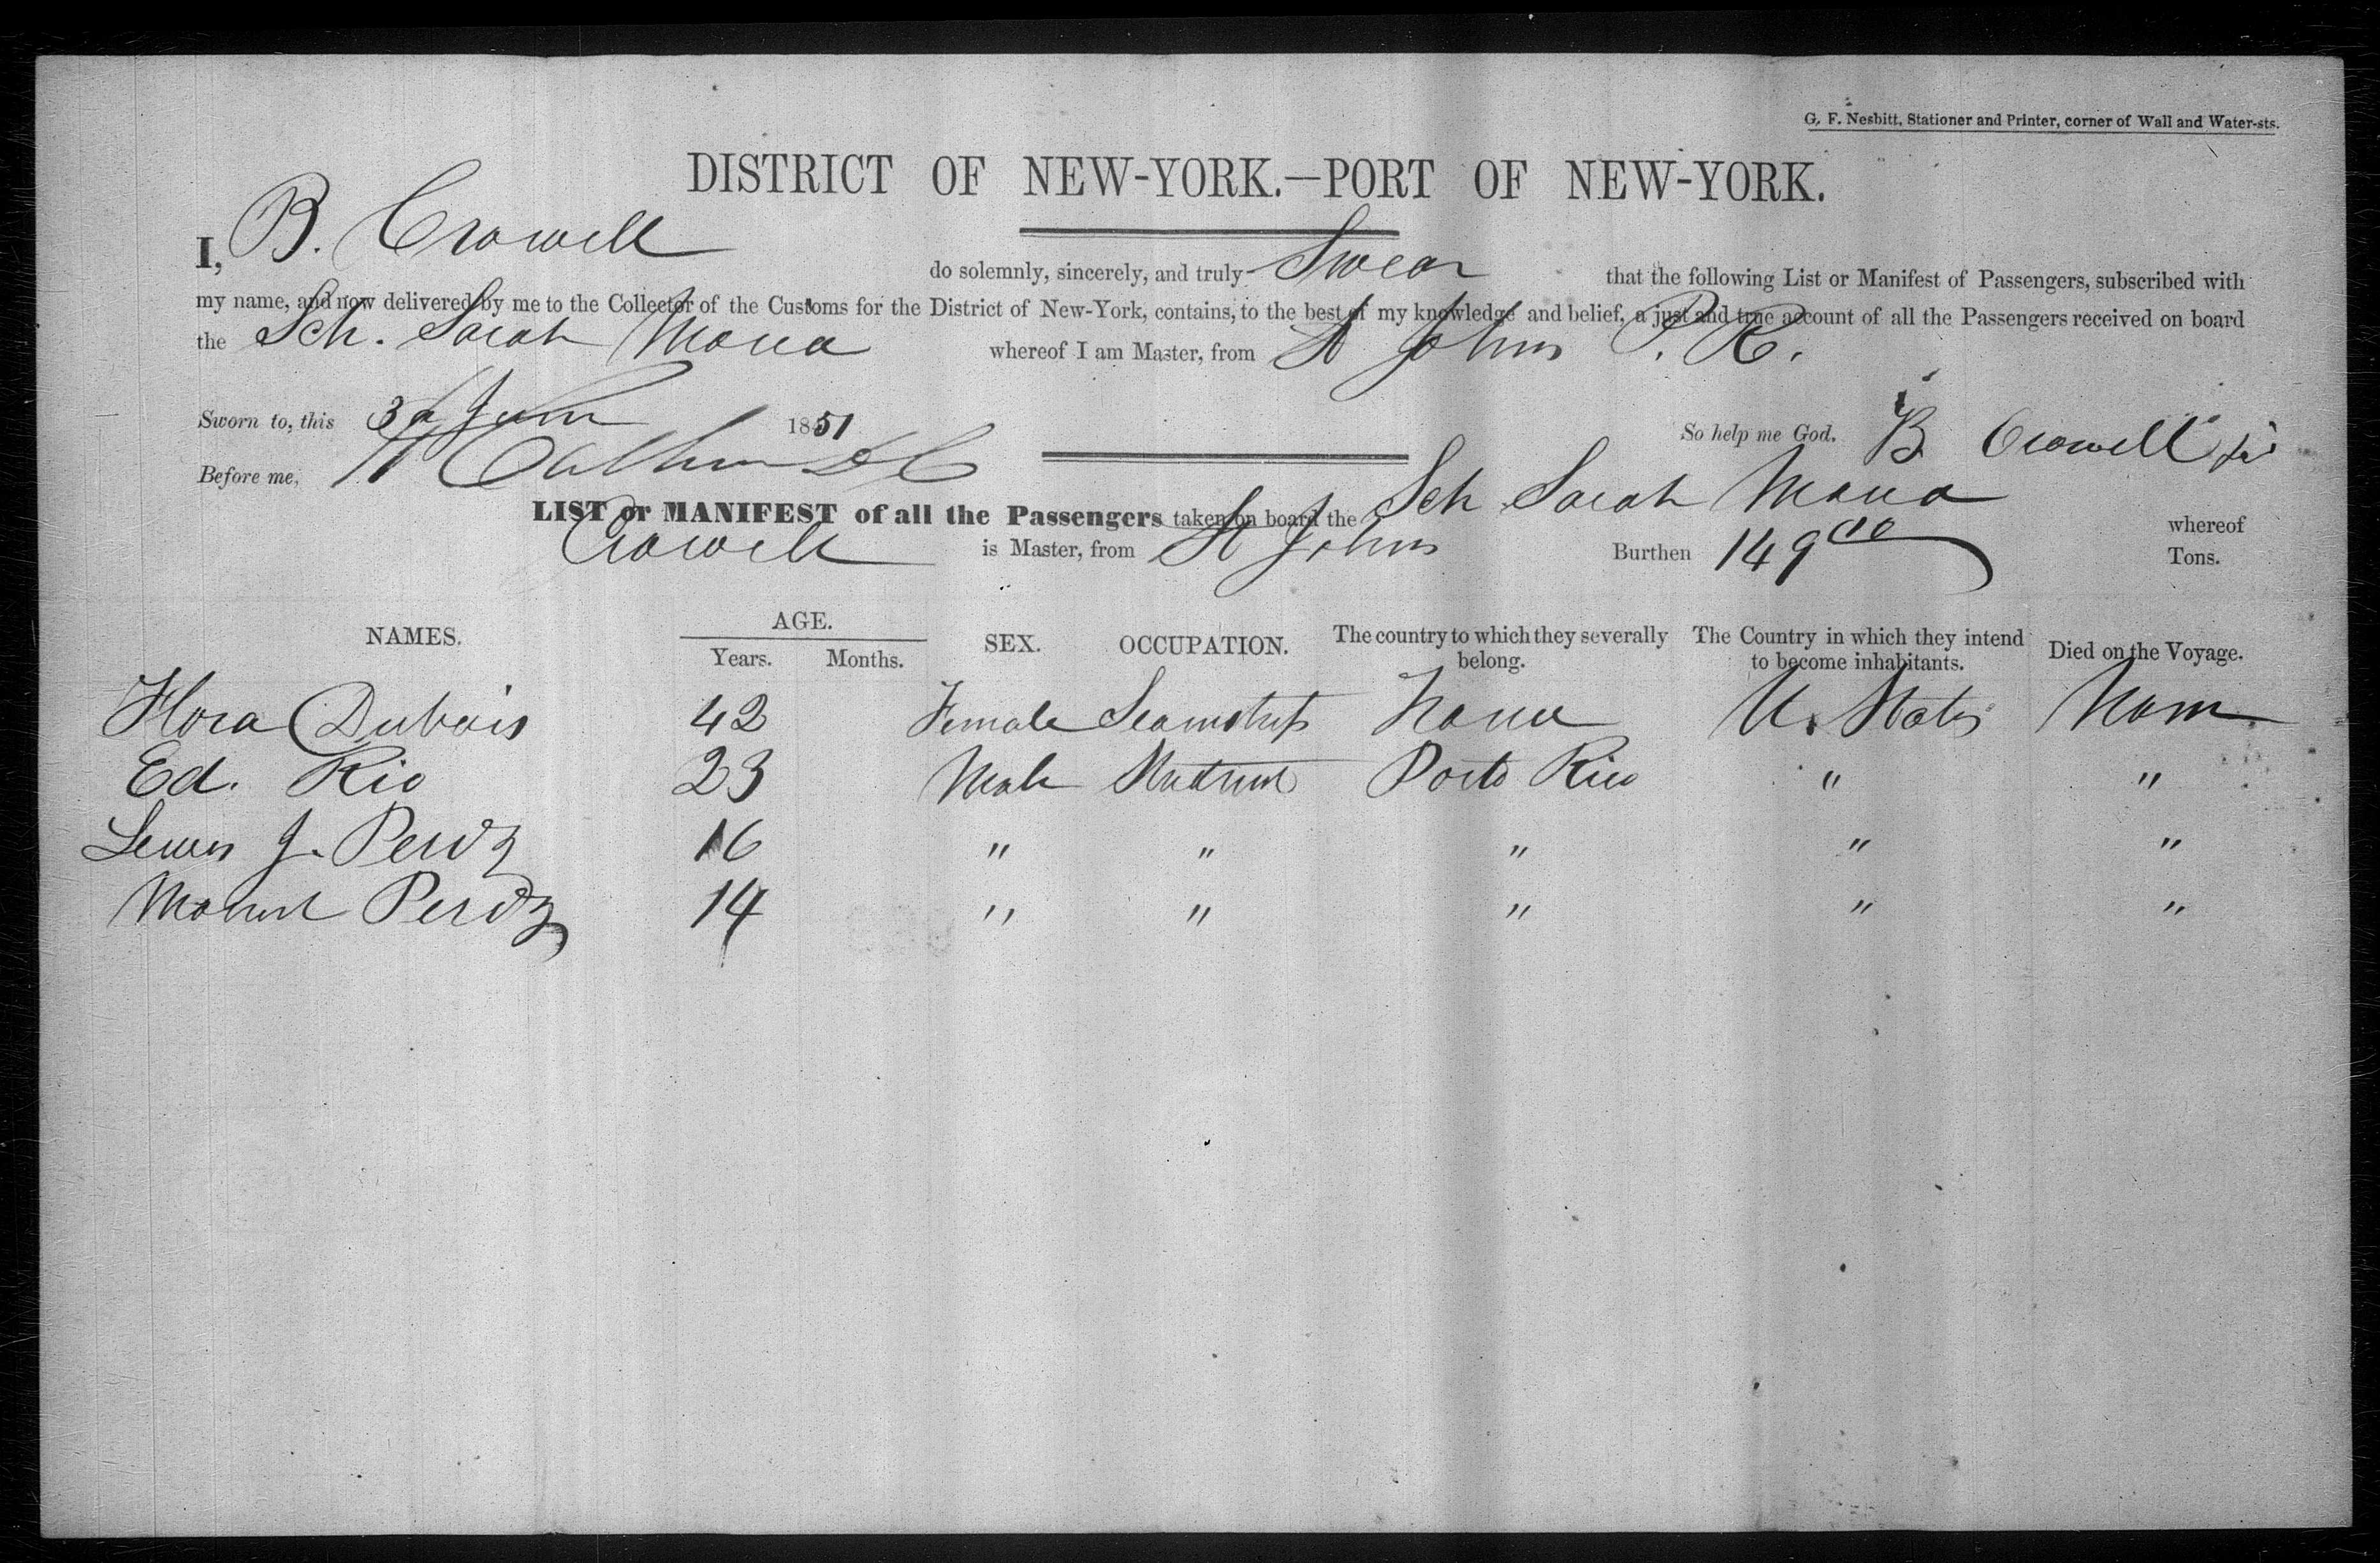 G. F. Nesbitt, Stationer and Printer, corner of Wall and Water-sts.
DISTRICT OF NEW-YORK.—PORT OF NEW-YORK.
I, B. Crowell do solemnly, sincerely, and truly Swear that the following List or Manifest of Passengers, subscribed with
my name, and now delivered by me to the Collector of the Customs for the District of New-York, contains, to the best of my knowledge and belief, a just and true account of all the Passengers received on board
the Sch. Sarah Mona whereof I am Master, from St Johns P. R.
Sworn to, this 30 June 1851 So help me God. B Crowell jr
Before me,
LIST or MANIFEST of all the Passengers taken on board the Sch Sarah Mona whereof
Crowell is Master, from St Johns Burthen 149 Tons.
NAMES. AGE. Years. Months. SEX. OCCUPATION. The country to which they severally belong. The Country in which they intend to become inhabitants. Died on the Voyage.
Flora Dubois 42 Female Seamstress U. States None
Ed. Rio 23 Male Student Porto Rico " "
J. Perdz 16 " " " " "
Perdz 14 " " " " "